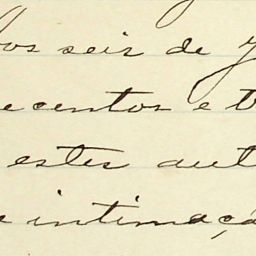 os seis de
centos e t
estes aut
e intimaçã